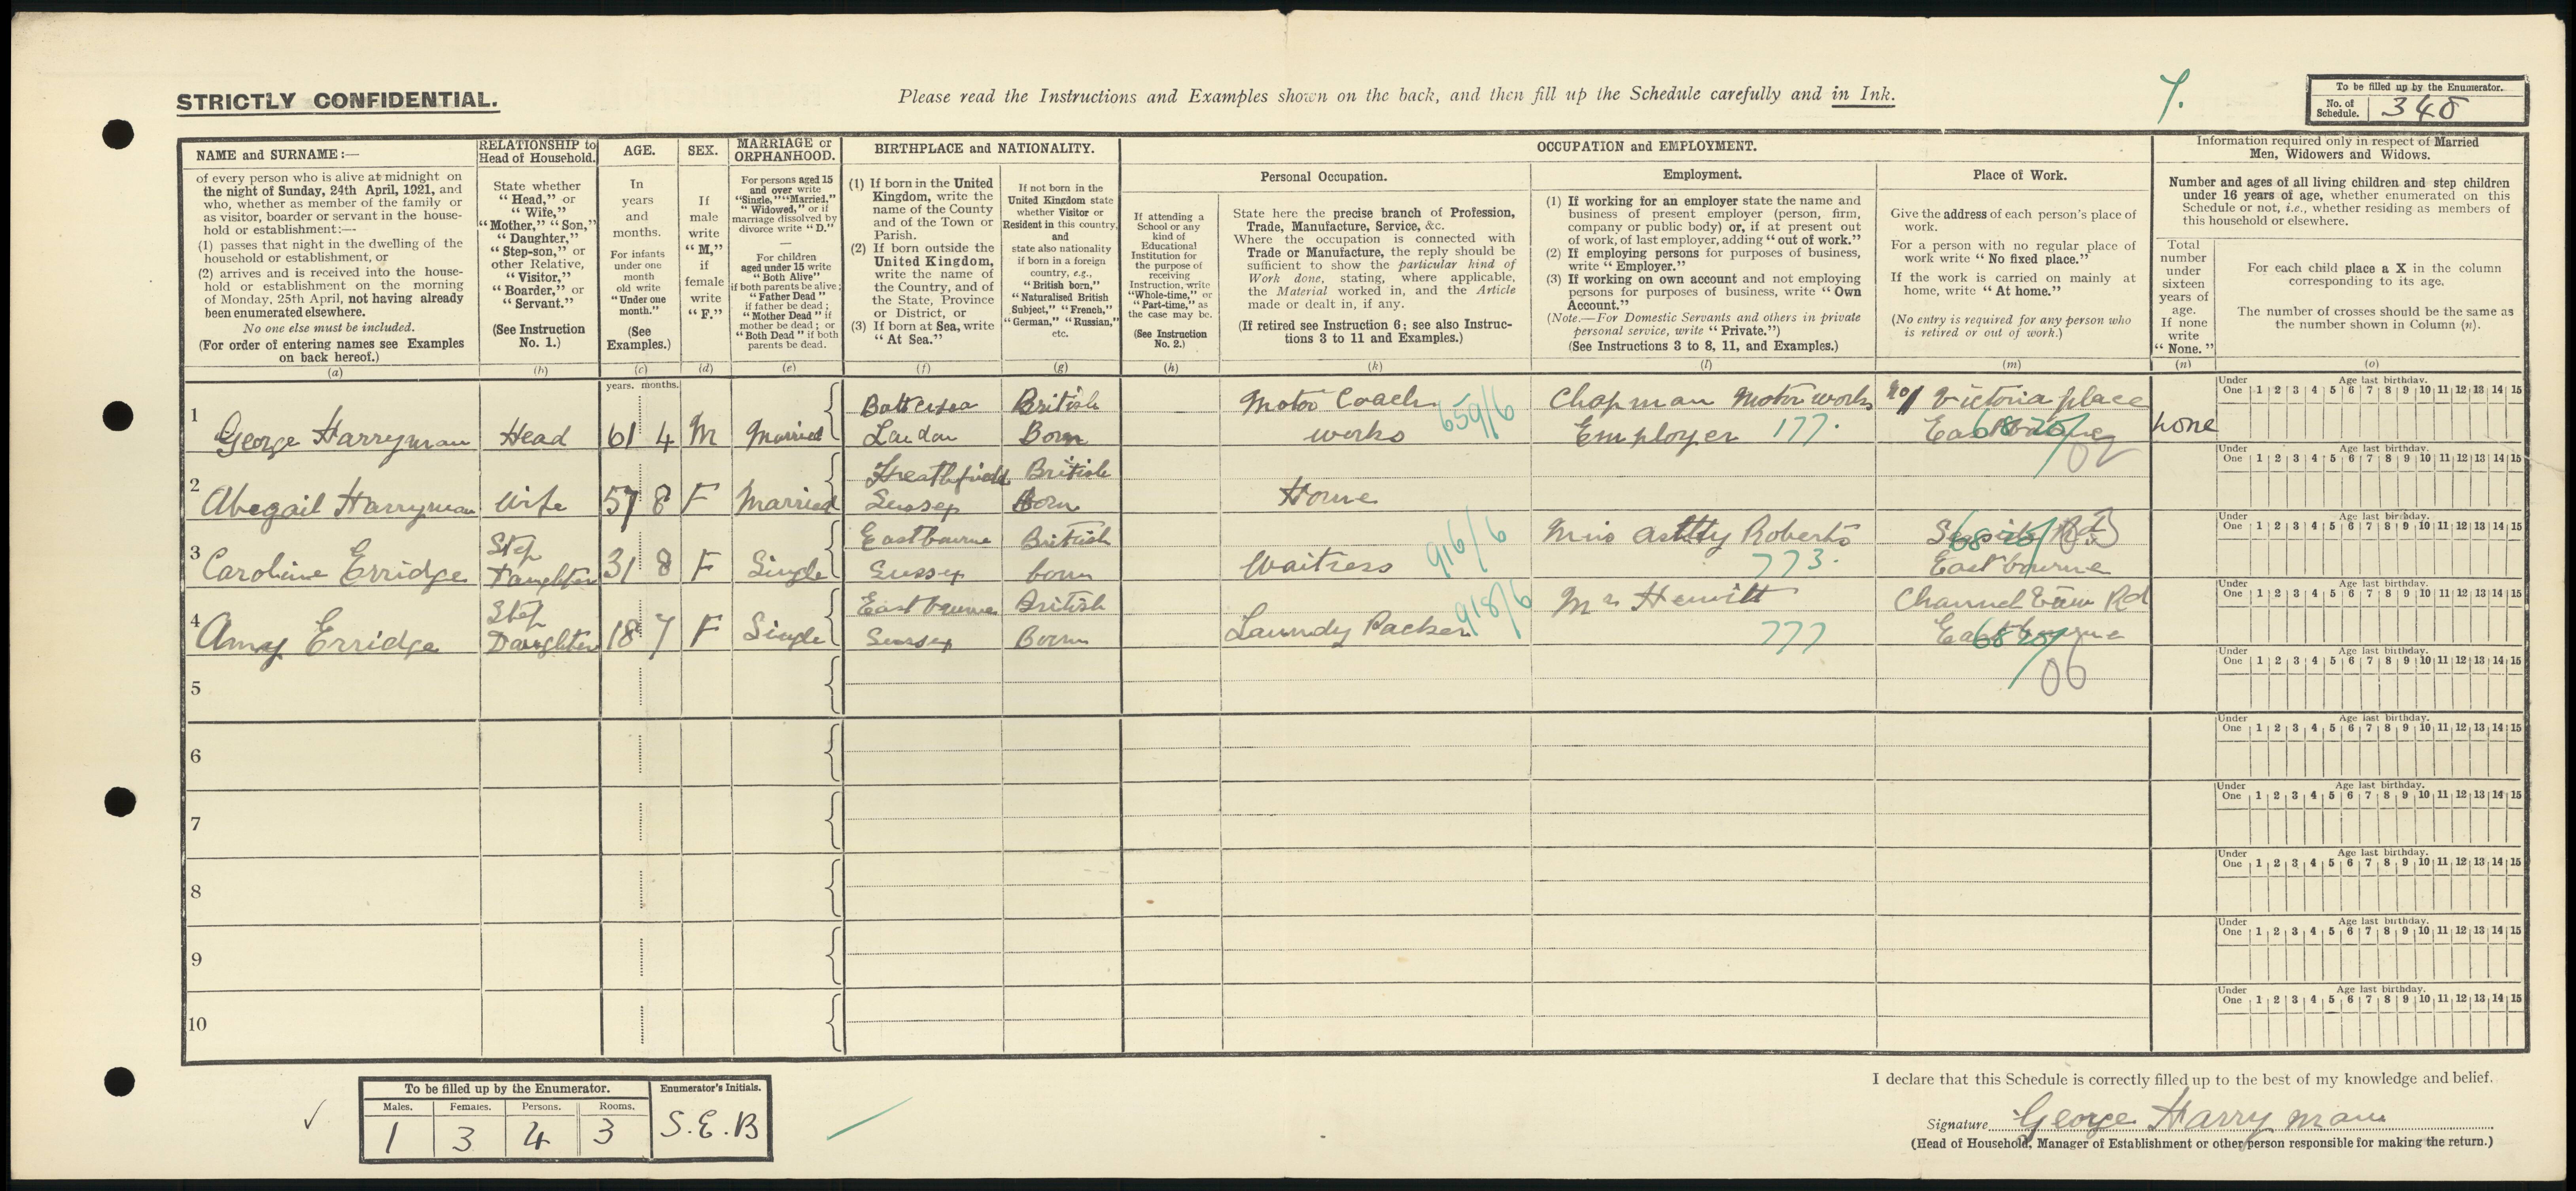 STRICTLY CONFIDENTIAL.
Please read the Instructions and Examples shown on the back, and then fill up the Schedule carefully and in Ink.
7.
To be filled up by the Enumerator.
No. of Schedule. 348
NAME and SURNAME:—
of every person who is alive at midnight on
the night of Sunday, 24th April, 1921, and
who, whether as member of the family or
as visitor, boarder or servant in the house-
hold or establishment:—
(1) passes that night in the dwelling of the
household or establishment, or
(2) arrives and is received into the house-
hold or establishment on the morning
of Monday, 25th April, not having already
been enumerated elsewhere.
No one else must be included.
(For order of entering names see Examples
on back hereof.)
(a)
RELATIONSHIP to
Head of Household.
State whether
"Head," or
"Wife,"
"Mother," "Son,"
"Daughter,"
"Step-son," or
other Relative,
"Visitor,"
"Boarder," or
"Servant."
(See Instruction
No. 1.)
(b)
AGE.
In
years
and
months.
For infants
under one
month
old write
"Under one
month."
(See
Examples.)
(c)
SEX.
If
male
write
"M,"
if
female
write
"F."
(d)
MARRIAGE or
ORPHANHOOD.
For persons aged 15
and over write
"Single," "Married,"
"Widowed," or if
marriage dissolved by
divorce write "D."
—
For children
aged under 15 write
"Both Alive"
if both parents be alive;
"Father Dead"
if father be dead;
"Mother Dead" if
mother be dead; or
"Both Dead" if both
parents be dead.
(e)
BIRTHPLACE and NATIONALITY.
(1) If born in the United
Kingdom, write the
name of the County
and of the Town or
Parish.
(2) If born outside the
United Kingdom,
write the name of
the Country, and of
the State, Province
or District, or
(3) If born at Sea, write
"At Sea."
(f)
If not born in the
United Kingdom state
whether Visitor or
Resident in this country,
and
state also nationality
if born in a foreign
country, e.g.,
"British born,"
"Naturalised British
Subject," "French,"
"German," "Russian,"
etc.
(g)
OCCUPATION and EMPLOYMENT.
If attending a
School or any
kind of
Educational
Institution for
the purpose of
receiving
Instruction, write
"Whole-time," or
"Part-time," as
the case may be.
(See Instruction
No. 2.)
(h)
Personal Occupation.
State here the precise branch of Profession,
Trade, Manufacture, Service, &c.
Where the occupation is connected with
Trade or Manufacture, the reply should be
sufficient to show the particular kind of
Work done, stating, where applicable,
the Material worked in, and the Article
made or dealt in, if any.
(If retired see Instruction 6; see also Instruc-
tions 3 to 11 and Examples.)
(k)
Employment.
(1) If working for an employer state the name and
business of present employer (person, firm,
company or public body) or, if at present out
of work, of last employer, adding "out of work."
(2) If employing persons for purposes of business,
write "Employer."
(3) If working on own account and not employing
persons for purposes of business, write "Own
Account."
(Note.—For Domestic Servants and others in private
personal service, write "Private.")
(See Instructions 3 to 8, 11, and Examples.)
(l)
Place of Work.
Give the address of each person's place of
work.
For a person with no regular place of
work write "No fixed place."
If the work is carried on mainly at
home, write "At home."
(No entry is required for any person who
is retired or out of work.)
(m)
Information required only in respect of Married
Men, Widowers and Widows.
Number and ages of all living children and step children
under 16 years of age, whether enumerated on this
Schedule or not, i.e., whether residing as members of
this household or elsewhere.
Total
number
under
sixteen
years of
age.
If none
write
"None."
(n)
For each child place a X in the column
corresponding to its age.
The number of crosses should be the same as
the number shown in Column (n).
(o)
years. months.
1 George Harryman Head 61 4 M Married Battersea London British Born Motor Coach works 659/6 Chapman Motor works Employer 177. Victoria place none
2 Abegail Harryman Wife 57 8 F Married Heathfield Sussex British Born Home
3 Caroline Erridge Step Daughter 31 8 F Single Eastbourne Sussex British born Waitress 916/6 Roberts 773. Eastbourne
4 Amy Erridge Step Daughter 18 7 F Single Eastbourne Sussex British Born Laundy Packer 918/6 Mr Hewitt 777 Channel View Rd 06
5
6
7
8
9
10
Under One 1 2 3 4 5 6 7 8 9 10 11 12 13 14 15
Age last birthday.
Under One 1 2 3 4 5 6 7 8 9 10 11 12 13 14 15
Age last birthday.
Under One 1 2 3 4 5 6 7 8 9 10 11 12 13 14 15
Age last birthday.
Under One 1 2 3 4 5 6 7 8 9 10 11 12 13 14 15
Age last birthday.
Under One 1 2 3 4 5 6 7 8 9 10 11 12 13 14 15
Age last birthday.
Under One 1 2 3 4 5 6 7 8 9 10 11 12 13 14 15
Age last birthday.
Under One 1 2 3 4 5 6 7 8 9 10 11 12 13 14 15
Age last birthday.
Under One 1 2 3 4 5 6 7 8 9 10 11 12 13 14 15
Age last birthday.
Under One 1 2 3 4 5 6 7 8 9 10 11 12 13 14 15
Age last birthday.
Under One 1 2 3 4 5 6 7 8 9 10 11 12 13 14 15
Age last birthday.
To be filled up by the Enumerator.
Males. Females. Persons. Rooms.
1 3 4 3
Enumerator's Initials.
S.E.B
I declare that this Schedule is correctly filled up to the best of my knowledge and belief.
Signature George Harryman
(Head of Household, Manager of Establishment or other person responsible for making the return.)